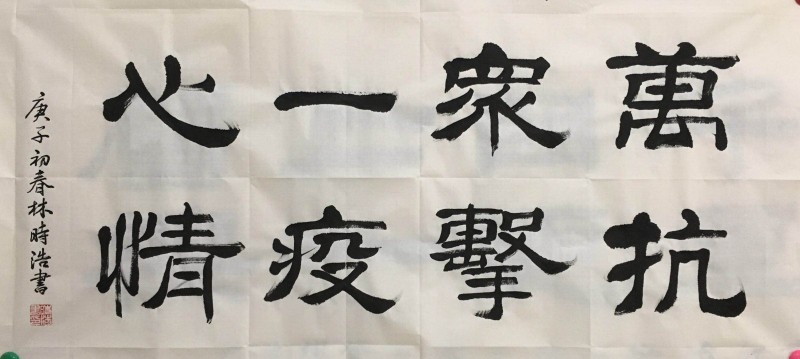 萬眾一心
抗擊疫情
庚子初春林時浩書